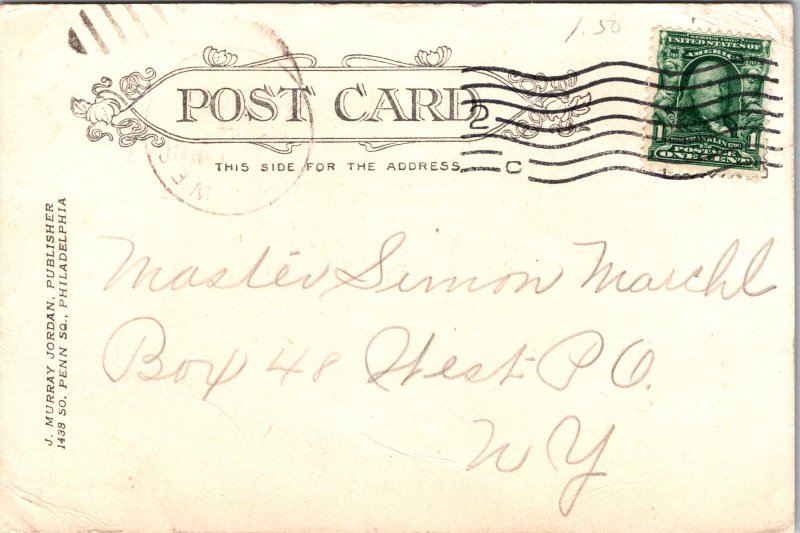 1.50
SERIES 1902
UNITED STATES OF
AMERICA
1 FRANKLIN 1
POSTAGE
ONE CENT
POST CARD
2
THIS SIDE FOR THE ADDRESS.
C
WE
J. MURRAY JORDAN, PUBLISHER
1438 SO. PENN SQ., PHILADELPHIA
Master Simon
Box 48 West P O.
N Y